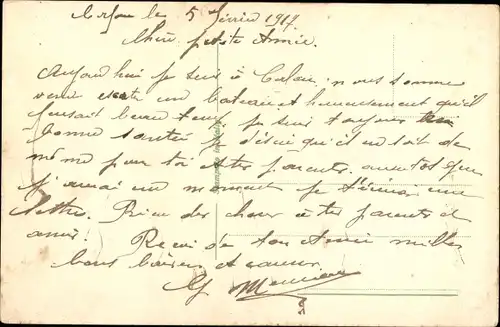 le 5 février 1917
Chère petite Amie
Aujourd'hui je suis à nous somme
venu un bateau et heureusement qu'il
faisait beau temp. je suis toujour
bonne santée je désire qu'il en soit de
même pour toi et tes parents. aussitôt que
j'aurai un moment je t'écrirai une
lettre. Rien des chose à tes parents et
amis. Reçoi de ton Amie milles
bons baisers et
G.